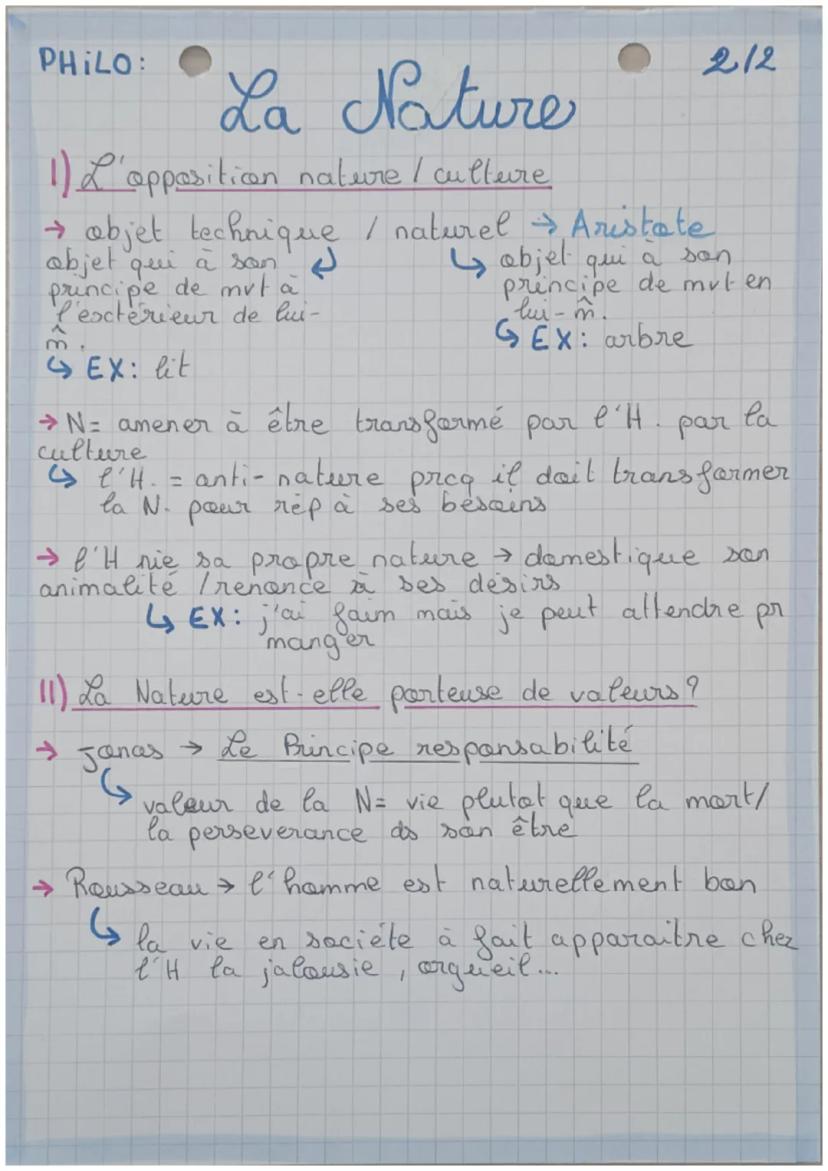 PHiLO: 2/2
La Nature
I) L'opposition nature / culture
→ objet technique / naturel → Aristote
objet qui à son ↲ ↳ objet qui à son
principe de mvt à principe de mvt en
l'exctérieur de lui- lui-m̂.
m̂. ↳ EX: arbre
↳ EX: lit
→ N= amener à être transformé par l'H. par la
culture
↳ l'H. = anti-nature prcq il doit transformer
la N. pour rép à ses besoins
→ l'H nie sa propre nature → domestique son
animalité / renonce à ses désirs
↳ EX: j'ai faim mais je peut attendre pr
manger
II) La Nature est-elle porteuse de valeurs?
→ Jonas → Le Principe responsabilité
↳ valeur de la N= vie plutot que la mort/
la perseverance ds son être
→ Rousseau → l'homme est naturellement bon
↳ la vie en société à fait apparaitre chez
l'H la jalousie, orgueil...